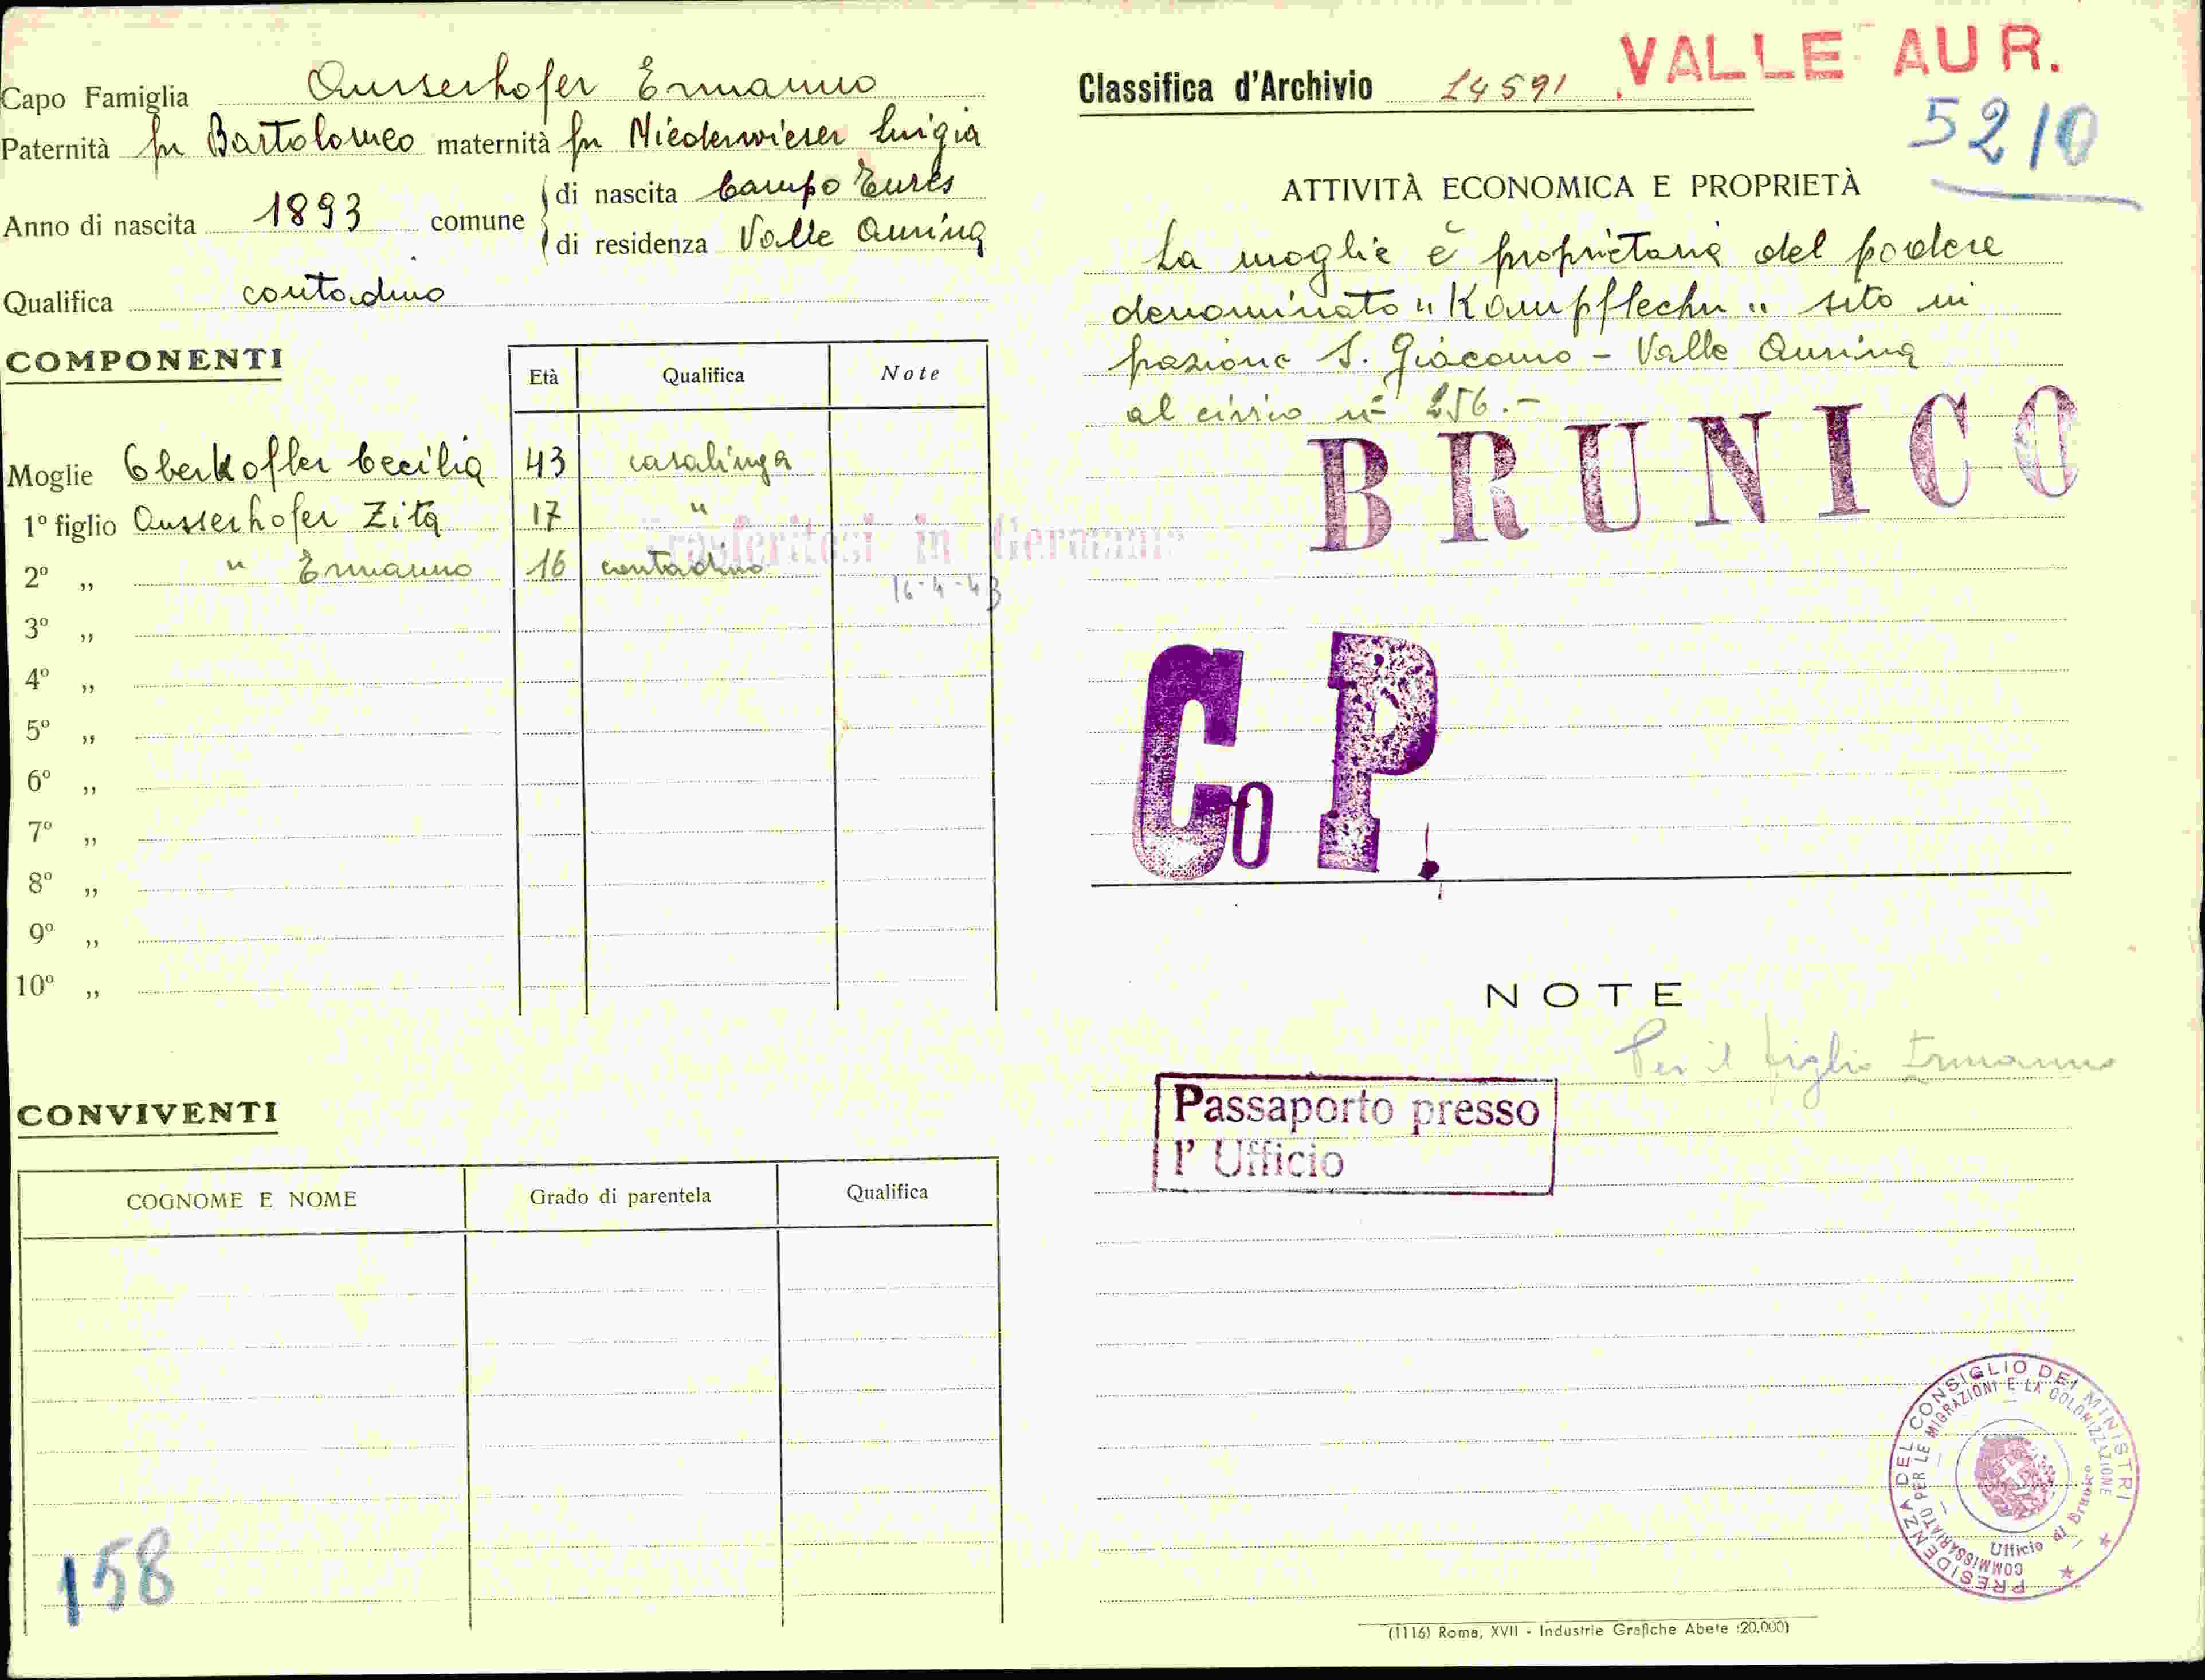 Capo Famiglia Ausserhofer Ermanno
Paternità fu Bartolomeo maternità fu Niederwieser Luigia
Anno di nascita 1893 comune di nascita Campo Tures
di residenza Valle Aurina
Qualifica contadino
COMPONENTI
Età Qualifica Note
Moglie Oberkofler Cecilia 43 casalinga
1º figlio Ausserhofer Zita 17 "
2º „ " Ermanno 16 contadino
in Germania
16-4-43
3º „
4º „
5º „
6º „
7º „
8º „
9º „
10º „
CONVIVENTI
COGNOME E NOME Grado di parentela Qualifica
158
Classifica d'Archivio 14591
VALLE AUR.
5210
ATTIVITÀ ECONOMICA E PROPRIETÀ
La moglie è proprietaria del podere
denominato "Kampflechn" sito in
frazione S. Giacomo - Valle Aurina
al civico nº 256.-
BRUNICO
Co P.
NOTE
Per il figlio Ermanno
Passaporto presso
l' Ufficio
PRESIDENZA DEL CONSIGLIO DEI MINISTRI
COMMISSARIATO PER LE MIGRAZIONI E LA COLONIZZAZIONE
Ufficio di Brunico
(1116) Roma, XVII - Industrie Grafiche Abete (20.000)